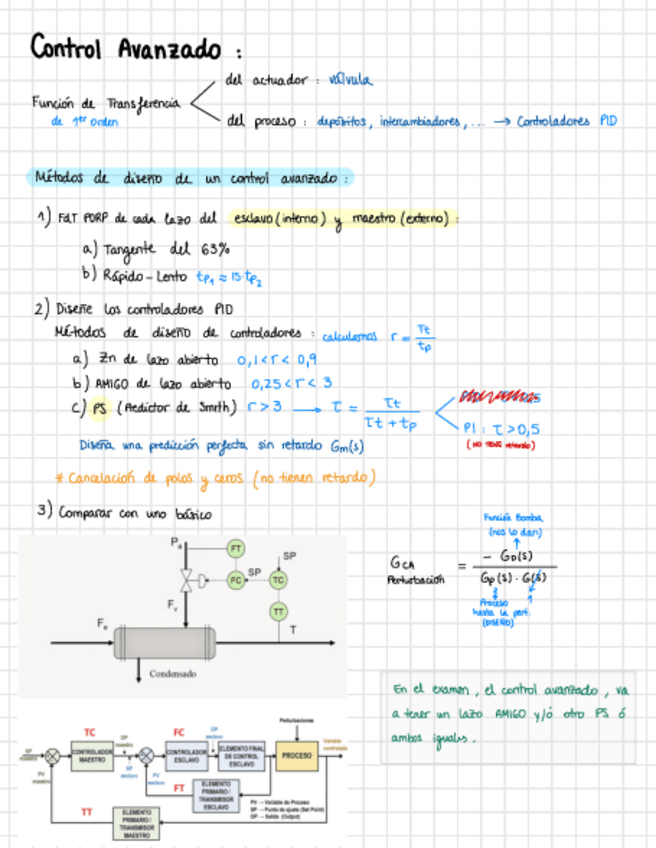 Control Avanzado :
del actuador : válvula
Función de Transferencia
de 1er orden
del proceso : depósitos, intercambiadores, ... → Controladores PID
Métodos de diseño de un control avanzado :
1) FdT PDRP de cada lazo del esclavo (interno) y maestro (externo) :
a) Tangente del 63%
b) Rápido - Lento tp1 ≈ 15·tp2
2) Diseñe los controladores PID
Métodos de diseño de controladores : calculamos r = τt / tp
a) Zn de lazo abierto 0,1 < r < 0,9
b) AMIGO de lazo abierto 0,25 < r < 3
c) PS (Predictor de Smith) r > 3 → τ = τt / τt + tp
PI : τ > 0,5
(NO TIENE retardo)
Diseña una predicción perfecta sin retardo Gm(s)
* Cancelación de polos y ceros (no tienen retardo)
3) Comparar con uno básico
Función Bomba
(nos lo dan)
GCA Perturbación = - GD(s) / Gp(s) · G(s)
Proceso
hasta la pert.
(DISEÑO)
FT
SP
FC
SP
TC
TT
T
Condensado
En el examen, el control avanzado, va
a tener un lazo AMIGO y/ó otro PS ó
ambos iguales.
Perturbaciones
TC
FC
Variable controlada
SP maestro
CONTROLADOR MAESTRO
OP maestro
SP esclavo
CONTROLADOR ESCLAVO
OP esclavo
ELEMENTO FINAL DE CONTROL ESCLAVO
PROCESO
PV maestro
PV esclavo
FT
ELEMENTO PRIMARIO / TRANSMISOR ESCLAVO
PV → Variable de Proceso
SP → Punto de ajuste (Set Point)
OP → Salida (Output)
TT
ELEMENTO PRIMARIO / TRANSMISOR MAESTRO